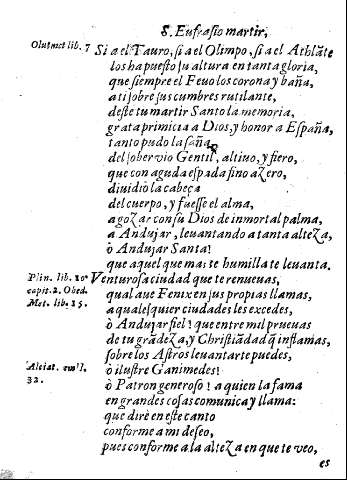 S. Eufrasio martir,
Olutmet lib. 7
Si a el Tauro, si a el Olimpo, si a el Athlãte
los ha puesto su altura en tanta gloria,
que siempre el Feuo los corona y baña,
a ti sobre sus cumbres rutilante,
deste tu martir Santo la memoria,
grata primicia a Dios, y honor a España,
tanto pudo la saña,
del soberuio Gentil, altiuo, y fiero,
que con aguda espada fino azero,
diuidiò la cabeça
del cuerpo, y fuesse el alma,
a gozar con su Dios de inmortal palma,
a Andujar, leuantando a tanta alteza,
ò Andujar Santa!
que aquel que mas te humilla te leuanta.
Plin. lib. 10
capit. 2. Obed.
Met. lib. 15.
Venturosa ciudad que te renueuas,
qual aue Fenix en sus propias llamas,
a qualesquier ciudades les excedes,
ò Andujar fiel! que entre mil prueuas
de tu grãdeza, y Christiãdad q̃ inflamas,
sobre los Astros leuantarte puedes,
Alciat. em l.
32.
ò ilustre Ganimedes!
ò Patron generoso! a quien la fama
en grandes cosas comunica y llama:
que dirè en este canto
conforme a mi deseo,
pues conforme a la alteza en que te veo,
es